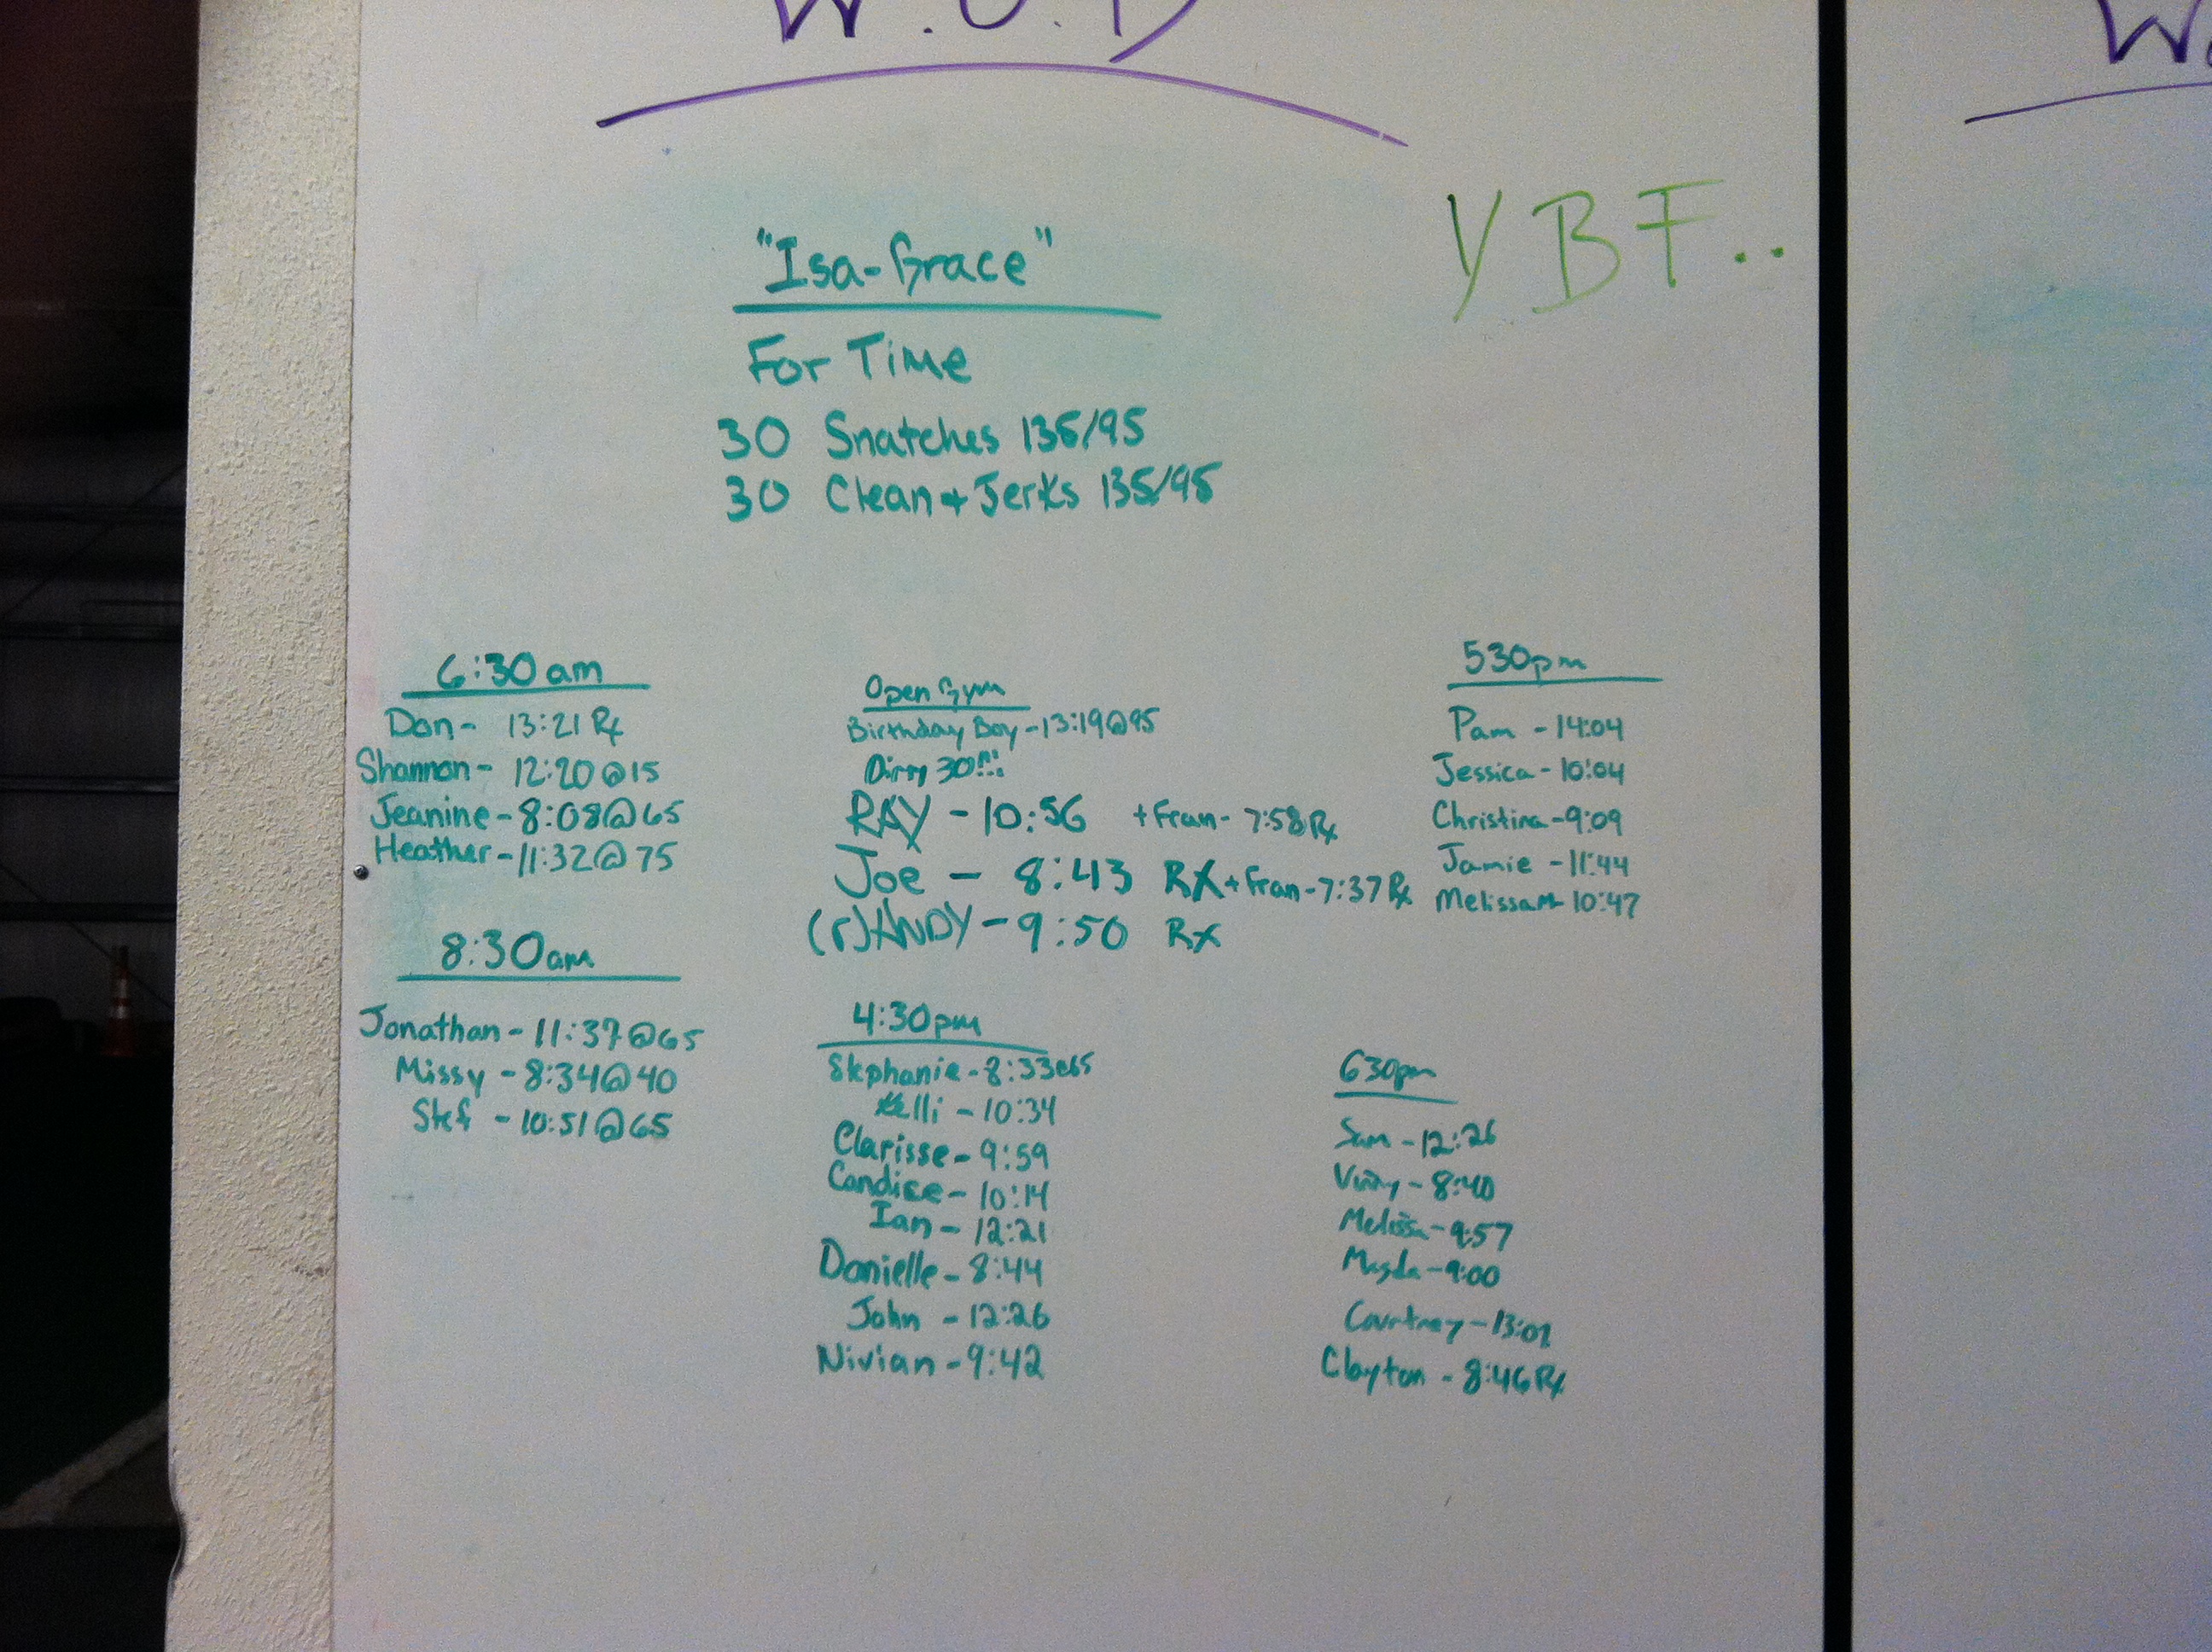 W.O.D
YBF..
"Isa-Grace"
For Time
30 Snatches 135/95
30 Clean + Jerks 135/95
6:30am
Dan - 13:21 Rx
Shannon - 12:20@15
Jeanine - 8:08@65
Heather - 11:32@75
8:30am
Jonathan - 11:37@65
Missy - 8:34@40
Stef - 10:51@65
Open Gym
Birthday Boy - 13:19@95
Dirty 30!!!
RAY - 10:56 + Fran - 7:58 Rx
Joe - 8:43 RX + Fran - 7:37 Rx
(r)ANDY - 9:50 RX
4:30pm
Stephanie - 8:33@65
Kelli - 10:34
Clarisse - 9:59
Candice - 10:14
Ian - 12:21
Danielle - 8:44
John - 12:26
Nivian - 9:42
530pm
Pam - 14:04
Jessica - 10:04
Christina - 9:09
Jamie - 11:44
Melissa M - 10:47
630pm
Sam - 12:26
Vinny - 8:40
Melissa - 9:57
Magda - 9:00
Courtney - 13:02
Clayton - 8:46 Rx